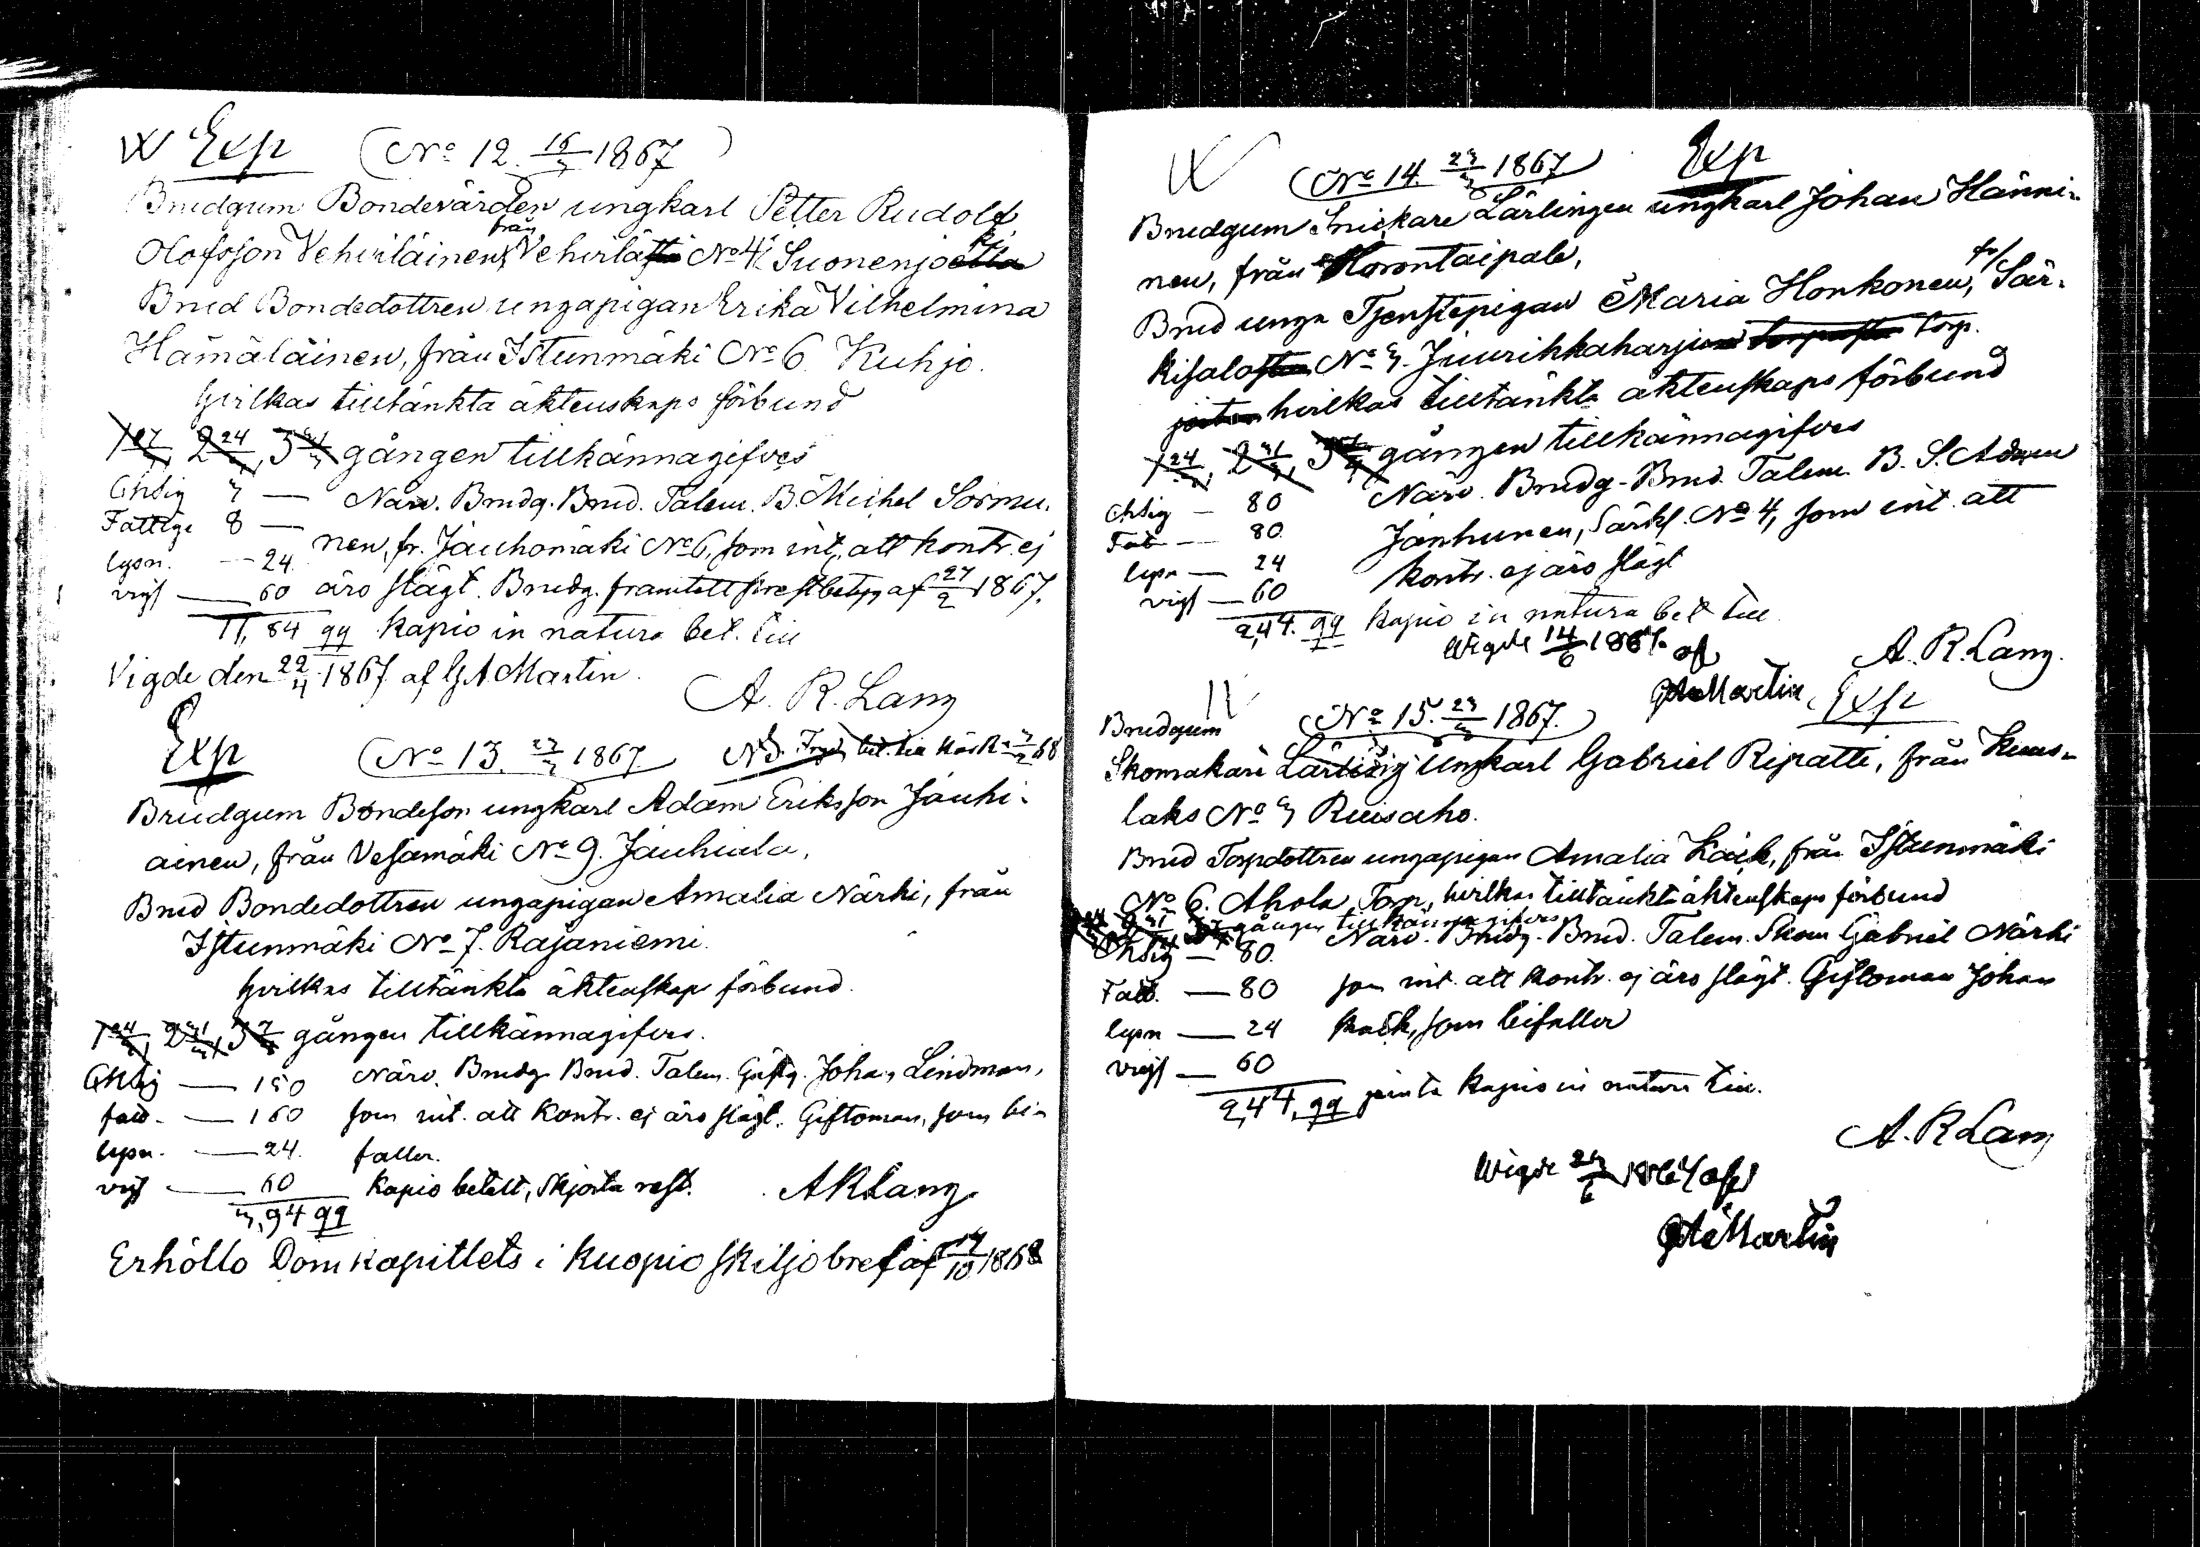 W Exp (No 12. 16/3 1867)
Brudgum Bondevärden ungkarl Petter Rudolf
från
Olofsson Vehviläinen, Vehvilä No 4 Suonenjo
Brud Bondedottren ungapigan Erika Vilhelmina
Hämäläinen, från Istunmäki No 6. Kuhjo.
hvilkas tilltänkta äktenskaps förbund
1 17/3, 2 24/3, 3 31/3 gången tillkännagifves
Ghslig 3 — Närv. Brudg. Brud. Talem. B. Michel Sormu-
Fattige 8 — nen, fr. Jauhomäki No 6, som int, att kontr. ej
lysn. — 24. äro slägt. Brudg. framtett frestbetyg af 27/2 1867.
vigs — 60
11,84 qq kapio in natura bet. till
Vigde den 22/4 1867 af G A Martin.
A. R. Lang
Exp (No 13. 23/3 1867 NB.
Brudgum Bondeson ungkarl Adam Eriksson Jauhi-
ainen, från Vesamäki No 9. Jauhiala.
Brud Bondedottren ungapigan Amalia Närhi, från
Istunmäki No 7. Rajaniemi.
hvilkas tilltänkta äktenskaps förbund.
1 24/3, 2 31/3, 3 7/4 gången tillkännagifves.
Ghslig — 150 Närv. Brudg Brud. Talem. Johan Lindman,
fatt. — 160 som int. att kontr. ej äro slägt. Giftoman, som bi-
lysn. — 24. faller.
vigs — 60 kapio betalt, skjorta rest. A R Lang
3,94 qq
Erhöllo Domkapitlets i Kuopio skiljobref af 14/10 1868
W (No 14. 23/3 1867) Exp
Brudgum Snickare Lärlingen ungkarl Johan Hänni-
nen, från Horontaipale,
Brud unga Tjenstepigan Maria Honkonen, fr/ Sär-
kisalo No 3. Juurikkaharju torp.
hvilkas tilltänkta äktenskaps förbund
1 24/3, 2 31/3, 3 7/4 gången tillkännagifves
Ghslig — 80 Närv. Brudg. Brud. Talem. B. S. Adam
Fatt — 80. Janhunen, Särks. No 4, som int. att
lysn — 24 kontr. ej äro slägt
vigs — 60
2,44. qq kapio in natura bet till
Wigde 14/6 1867 af A. R. Lang.
G A Martin
(No 15. 23/3 1867.) Exp
Brudgum
Skomakare Lärling Ungkarl Gabriel Ripatti, från Kuus-
laks No 3 Ruisaho.
Brud Torpdottren ungapigan Amalia Kaik, från Istunmäki
No 6. Ahola Torp, hvilkas tilltänkta äktenskaps förbund
gången tillkännagifves
Ghslig — 80. Närv. Brudg. Brud. Talem. Skom Gabriel Närhi
Fatt. — 80 som int. att kontr. ej äro slägt. Giftoman Johan
lysn — 24 Kaik, som bifaller
vigs — 60
2,44, qq kapio in natura till.
A. R Lang
Wigde 23/6 1867 af
G A Martin